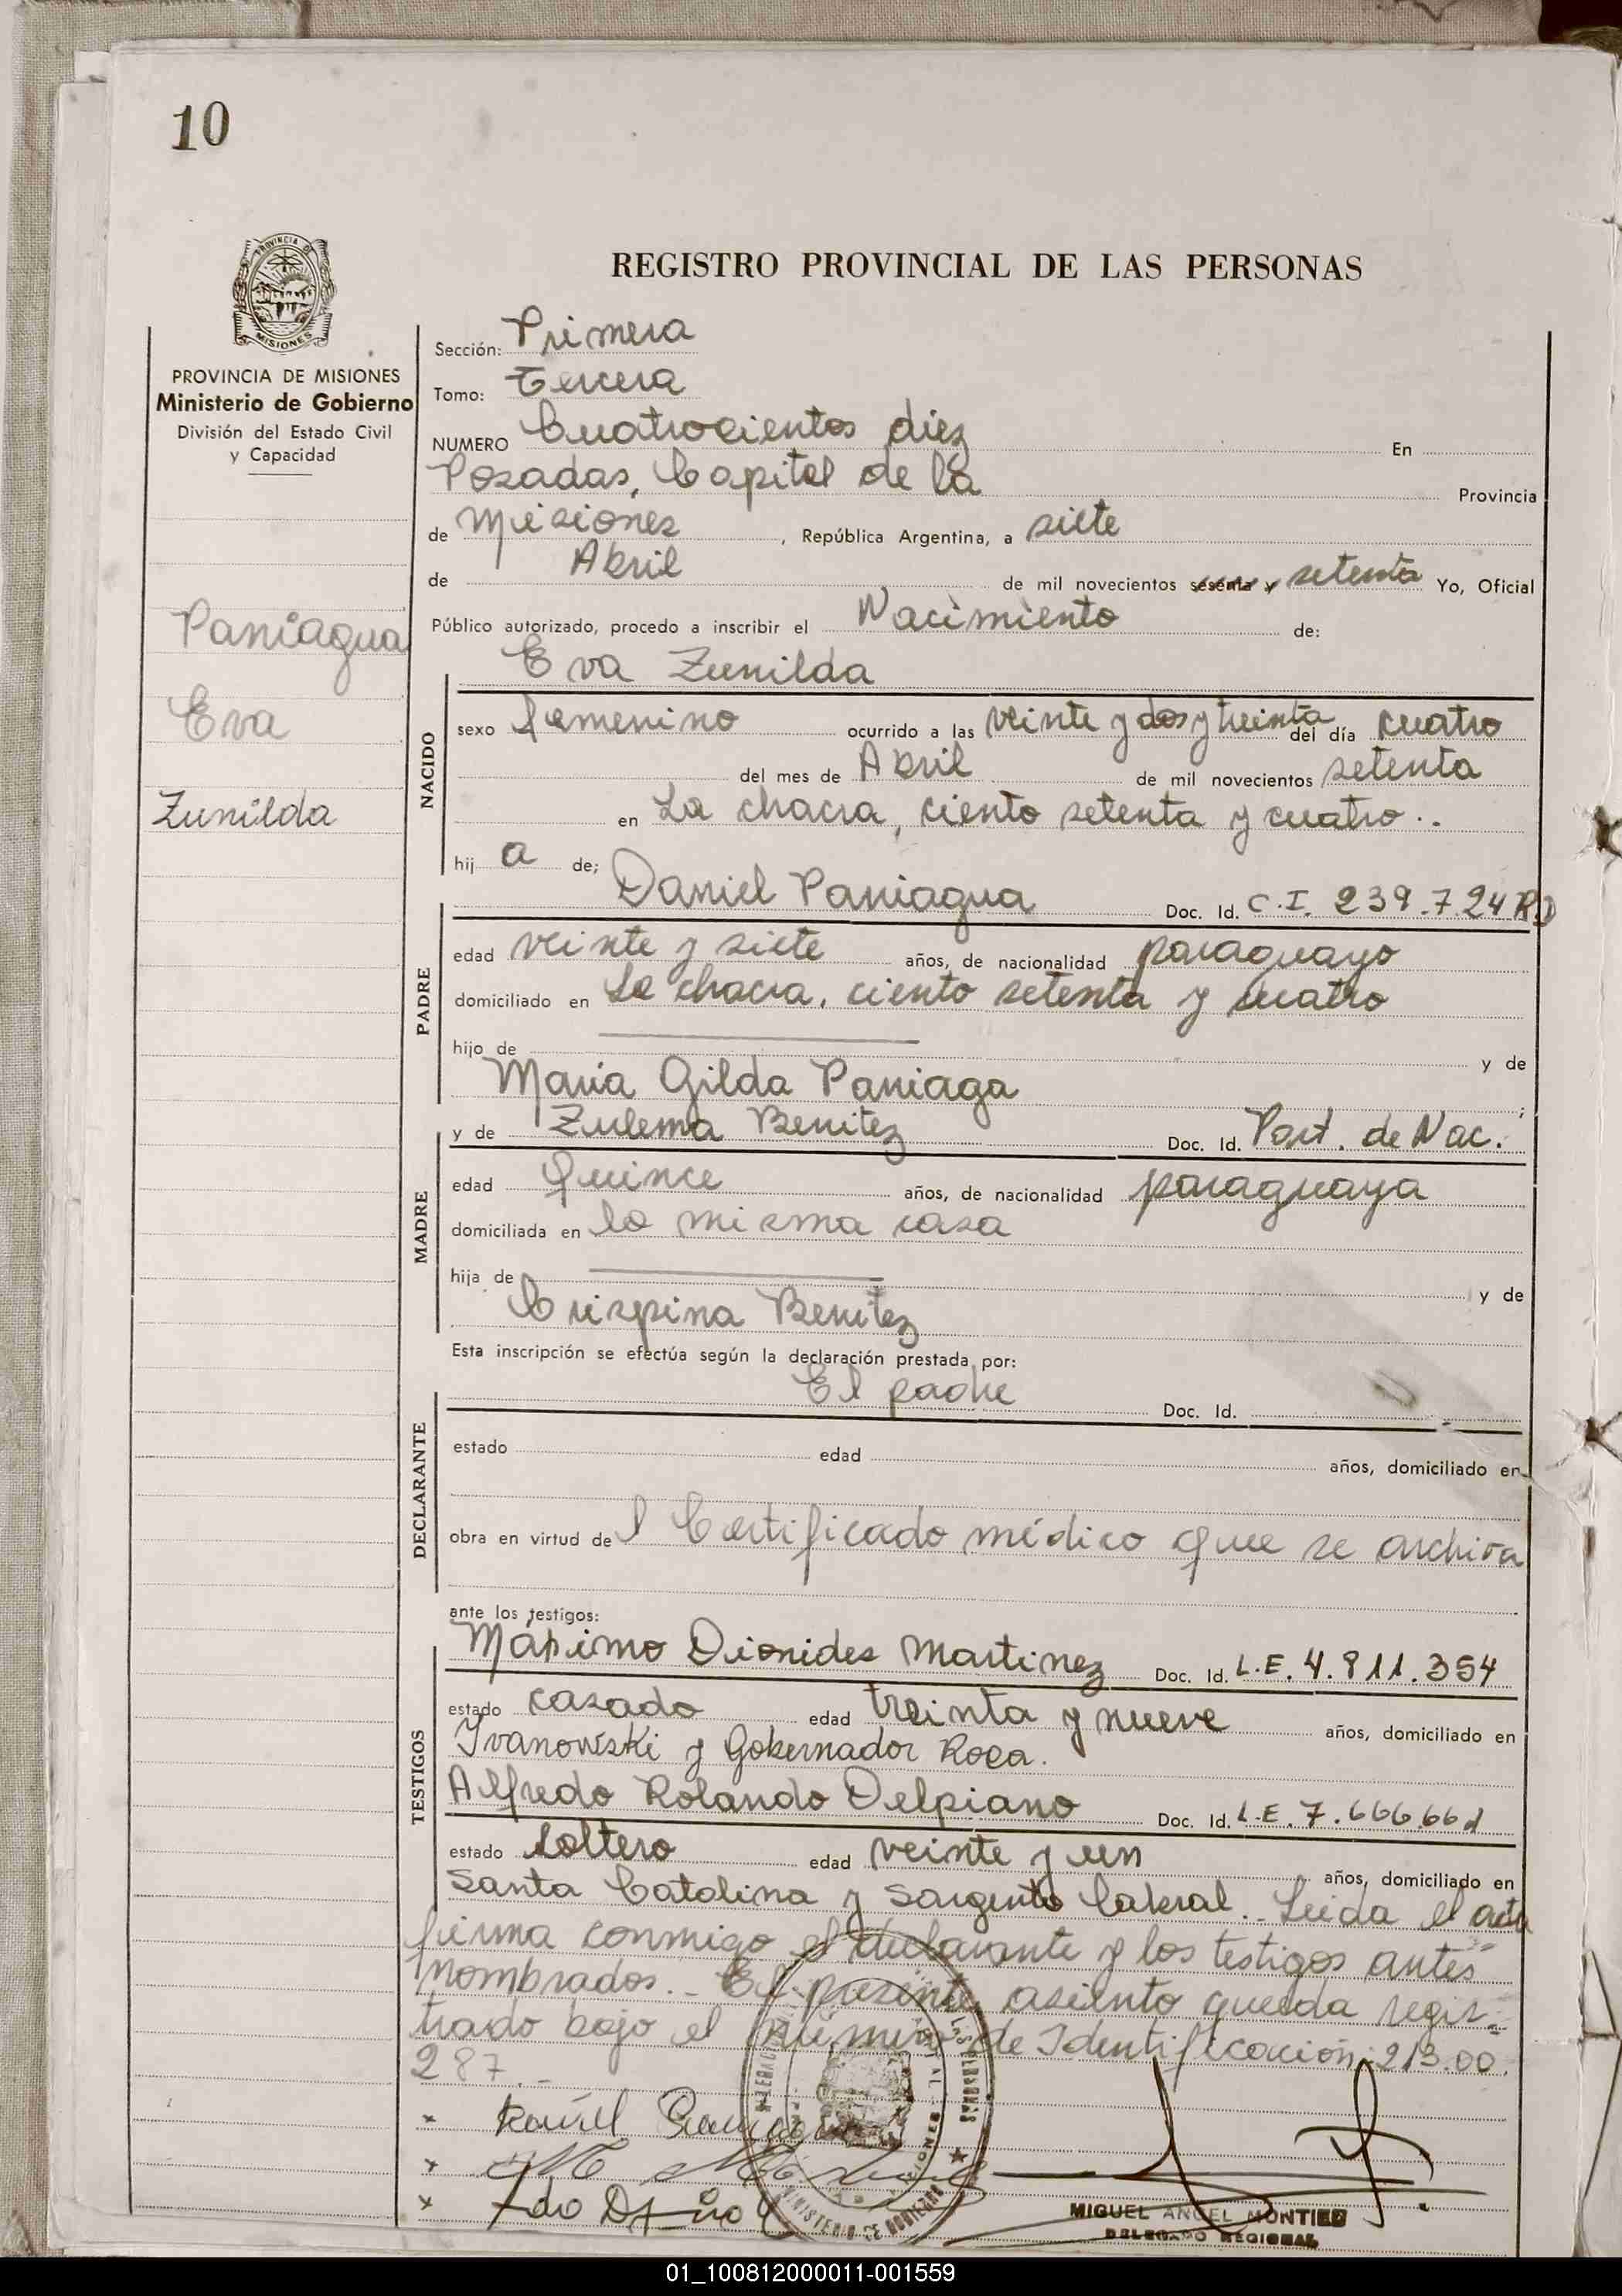 10
PROVINCIA DE
MISIONES
REGISTRO PROVINCIAL DE LAS PERSONAS
PROVINCIA DE MISIONES
Ministerio de Gobierno
División del Estado Civil
y Capacidad
Paniagua
Eva
Zunilda
Sección: Primera
Tomo: Tercera
NUMERO Cuatrocientos diez En
Posadas, Capital de la Provincia
de Misiones, República Argentina, a siete
de Abril de mil novecientos sesenta y setenta Yo, Oficial
Público autorizado, procedo a inscribir el Nacimiento de:
Eva Zunilda
NACIDO
sexo femenino ocurrido a las veinte y dos y treinta del día cuatro
del mes de Abril de mil novecientos setenta
en La chacra, ciento setenta y cuatro..
hij a de;
Daniel Paniagua Doc. Id. C.I. 239.724 R.P
PADRE
edad veinte y siete años, de nacionalidad paraguayo
domiciliado en La chacra, ciento setenta y cuatro
hijo de y de
Maria Gilda Paniaga ;
y de Zulema Benitez Doc. Id. Part. de Nac.
MADRE
edad Quince años, de nacionalidad paraguaya
domiciliada en la misma casa
hija de y de
Crispina Benitez
Esta inscripción se efectúa según la declaración prestada por:
El padre Doc. Id.
DECLARANTE
estado edad años, domiciliado en
obra en virtud del Certificado médico que se archiva
ante los testigos:
Máximo Dionides Martinez Doc. Id. L.E. 4.811.354
TESTIGOS
estado casado edad treinta y nueve años, domiciliado en
Ivanowski y Gobernador Roca.
Alfredo Rolando Delpiano Doc. Id. L.E. 7.666.661
estado soltero edad veinte y un años, domiciliado en
Santa Catalina y Sargento Cabral.- Leida el acta
firma conmigo el declarante y los testigos antes
nombrados.- El presente asiento queda regis-
trado bajo el número de Identificación: 213.00.
287.-
MIGUEL ANGEL MONTIEL
DELEGADO REGIONAL
01_100812000011-001559